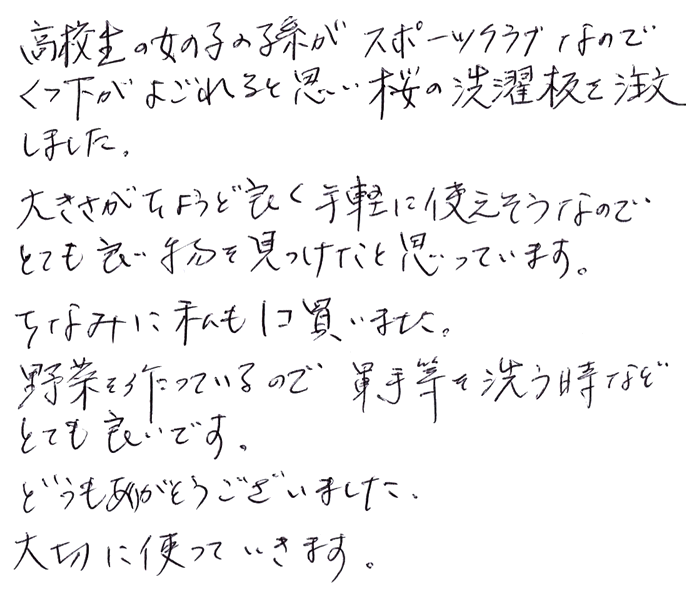 高校生の女の子の孫が スポーツクラブなので
くつ下がよごれると思い桜の洗濯板を注文
しました。
大きさがちょうど良く手軽に使えそうなので
とても良い物を見つけたと思っています。
ちなみに私も1コ買いました。
野菜を作っているので 軍手等を洗う時なぞ
とても良いです。
どうもありがとうございました.
大切に使っていきます。